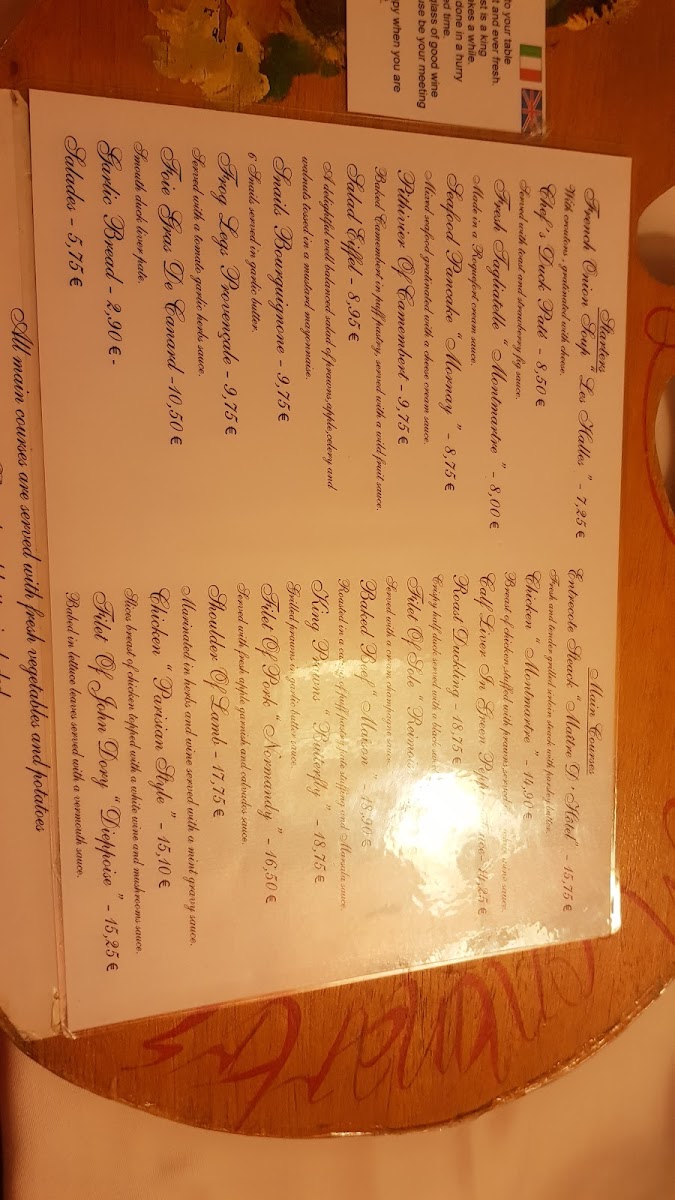 to your table
st is a king
t and ever fresh.
kes a while.
done in a hurry
d time.
glass of good wine
use be your meeting
py when you are
Starters
French Onion Soup "Les Halles" - 7,25 €
With croutons, gratinated with cheese.
Chef's Duck Paté - 8,50 €
Served with toast and strawberry fig sauce.
Fresh Tagliatelle "Montmartre" - 8,00 €
Made in a Roquefort cream sauce.
Seafood Pancake "Mornay" - 8,75 €
Mixed seafood gratinated with a cheese cream sauce.
Pithivier Of Camembert - 9,75 €
Baked Camembert in puff pastry, served with a wild fruit sauce.
Salad Eiffel - 8,95 €
A delightful well balanced salad of prawns, apple, celery and
walnuts tossed in a mustard mayonnaise.
Snails Bourguignone - 9,75 €
6 Snails served in garlic butter.
Frog Legs Provençale - 9,75 €
Served with a tomato garlic herbs sauce.
Foie Gras De Canard - 10,50 €
Smooth duck liver pate.
Garlic Bread - 2,90 € -
Salades - 5,75 €
Main Courses
Entrecote Steack "Maître D'Hôtel" - 15,75 €
Fresh and tender grilled sirloin steack with parsley butter.
Chicken "Montmartre" - 14,90 €
Breast of chicken stuffed with prawns, served wine sauce.
Calf Liver In Green - 14,25 €
Roast Duckling - 18,75 €
Crispy half duck served with a black
Filet Of Sole "Rémois
Served with a cream champagne sauce.
Baked Beef "Maison" - 18,90 €
Roasted in a cover of puff pastry, pate stuffing and Marsala sauce.
King Prawns "Butterfly" - 18,75 €
Grilled prawns in garlic butter sauce.
Filet Of Pork "Normandy" - 16,50 €
Served with fresh apple garnish and calvados sauce.
Shoulder Of Lamb - 17,75 €
Marinated in herbs and wine served with a mint gravy sauce.
Chicken "Parisian Style" - 15,10 €
Slices breast of chicken topped with a white wine and mushrooms sauce.
Filet Of John Dory "Dieppoise" - 15,25 €
Baked in lettuce leaves served with a vermouth sauce.
All main courses are served with fresh vegetables and potatoes